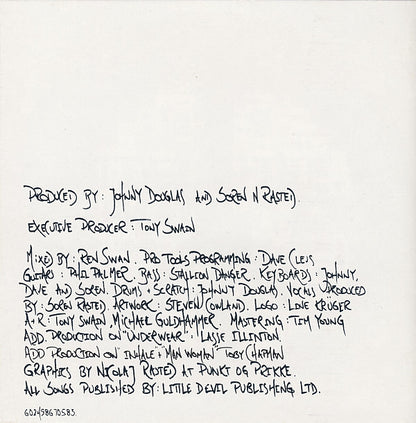 PRODUCED BY: JOHNNY DOUGLAS AND SOREN N RASTED.
EXECUTIVE PRODUCER: TONY SWAIN
MIXED BY: REN SWAN. PRO TOOLS PROGRAMMING: DAVE CLEIS
GUITARS: PHIL PALMER. BASS: STALLION DANGER. KEYBOARDS: JOHNNY,
DAVE AND SOREN. DRUMS + SCRATCH: JOHNNY DOUGLAS. VOCALS PRODUCED
BY: SOREN RASTED. ARTWORK: STEVEN COWLAND. LOGO: LINE KRÜGER
A+R: TONY SWAIN, MICHAEL GULDHAMMER. MASTERING: TIM YOUNG
ADD. PRODUCTION ON "UNDERWEAR": LASSE ILLINTON.
ADD PRODUCTION ON INHALE + MAN WOMAN TOBY CHAPMAN
GRAPHICS BY NICOLAJ RASTED AT PUNKT OG PRIKKE.
ALL SONGS PUBLISHED BY: LITTLE DEVIL PUBLISHENG LTD.
602458670583.